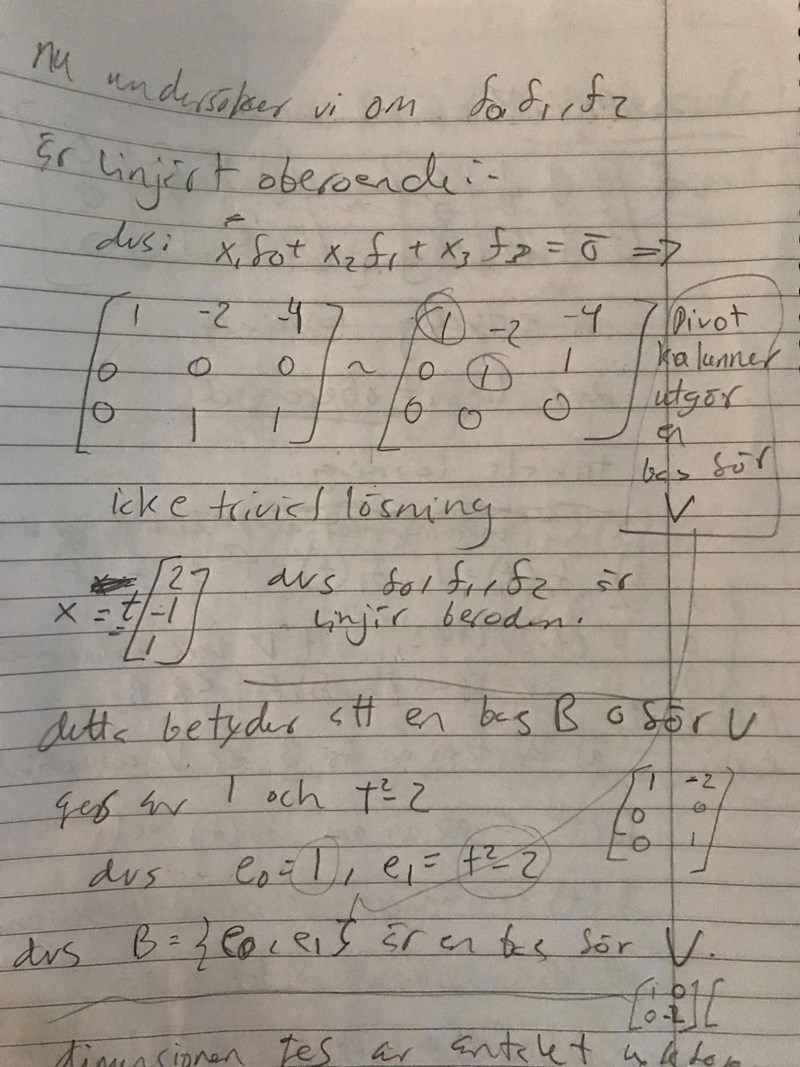 nu undersöker vi om f0, f1, f2
är linjärt oberoende:-
dvs: x1f0+ x2f1+ x3f2 = 0̄ =>
[1 -2 -4] ~ [1 -2 -4]
[0 0 0] [0 1 1]
[0 1 1] [0 0 0]
Pivot
kalunner
utgör
en
bas för
V
icke trivial lösning
x = t [2 -1 1]
dvs f0, f1, f2 är
linjär beroden.
detta betyder att en bas B för V
ges av 1 och t²-2
[1 -2]
[0 0]
[0 1]
dvs e0=1, e1= t²-2
dvs B={e0, e1} är en bas för V.
[1 0] [
[0 -2]
dimensionen ges av antalet